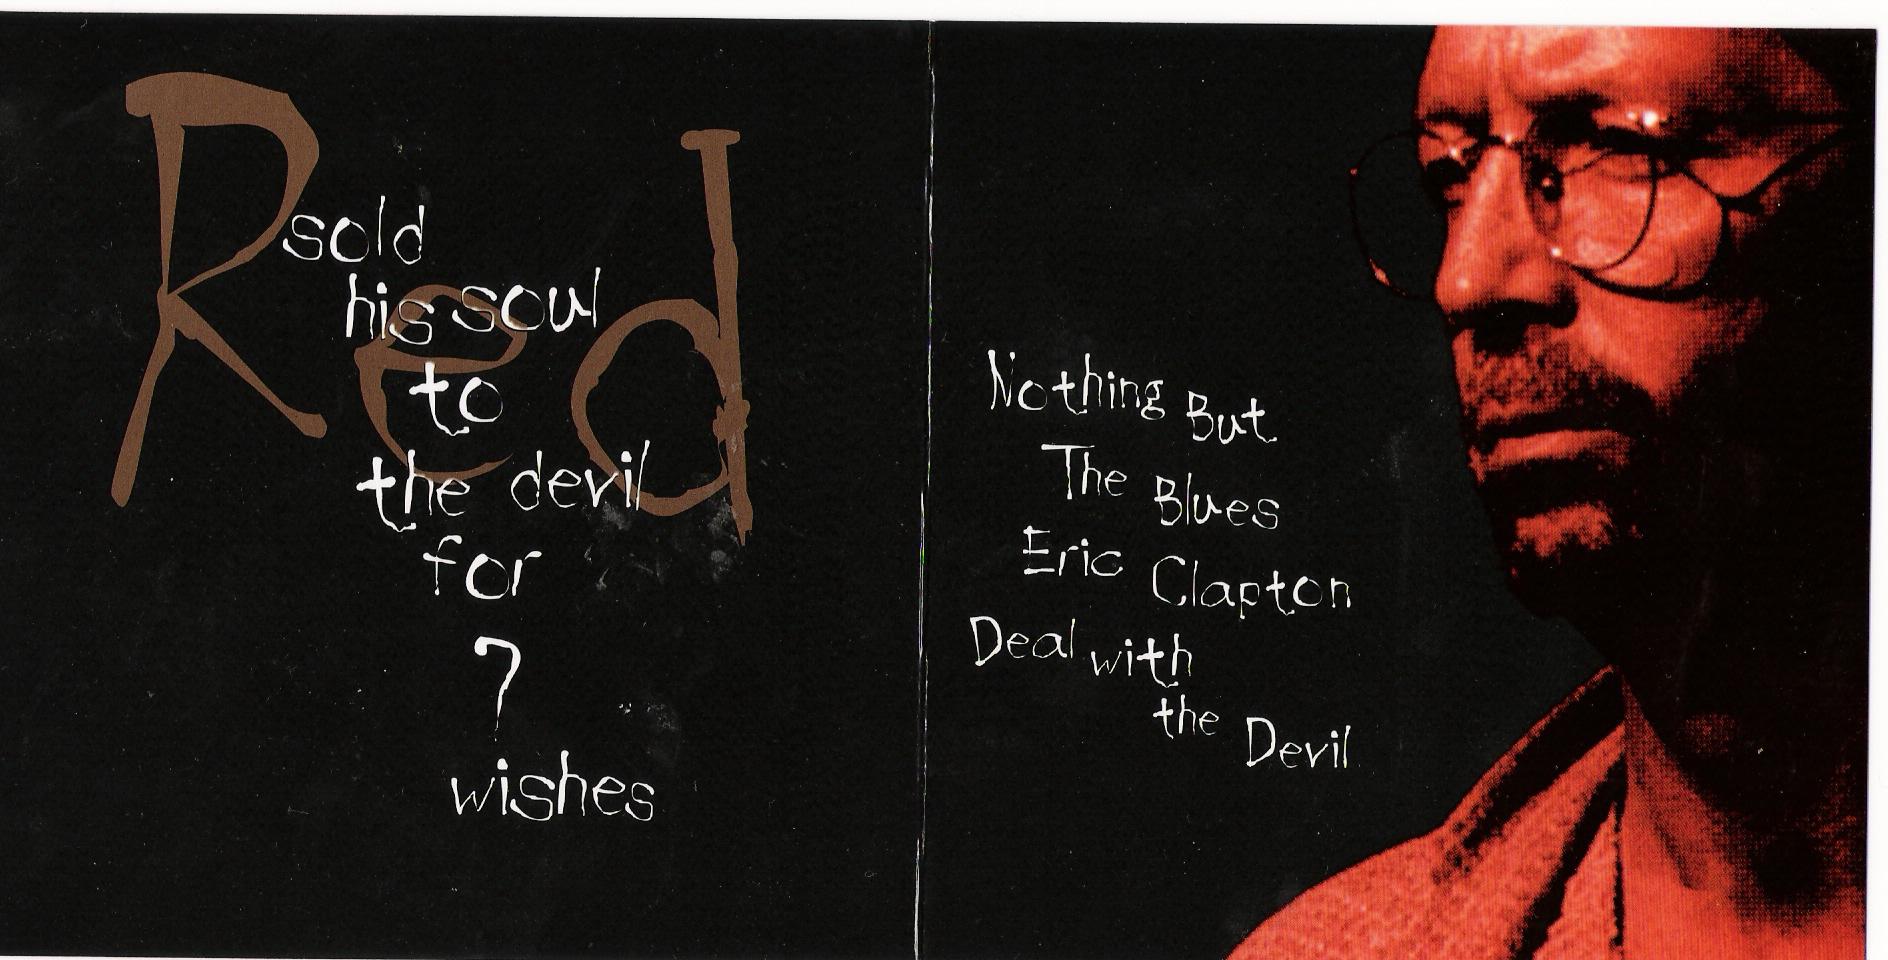 Red
sold
his soul
to
the devil
for
7
wishes
Nothing But
The Blues
Eric Clapton
Deal with
the Devil